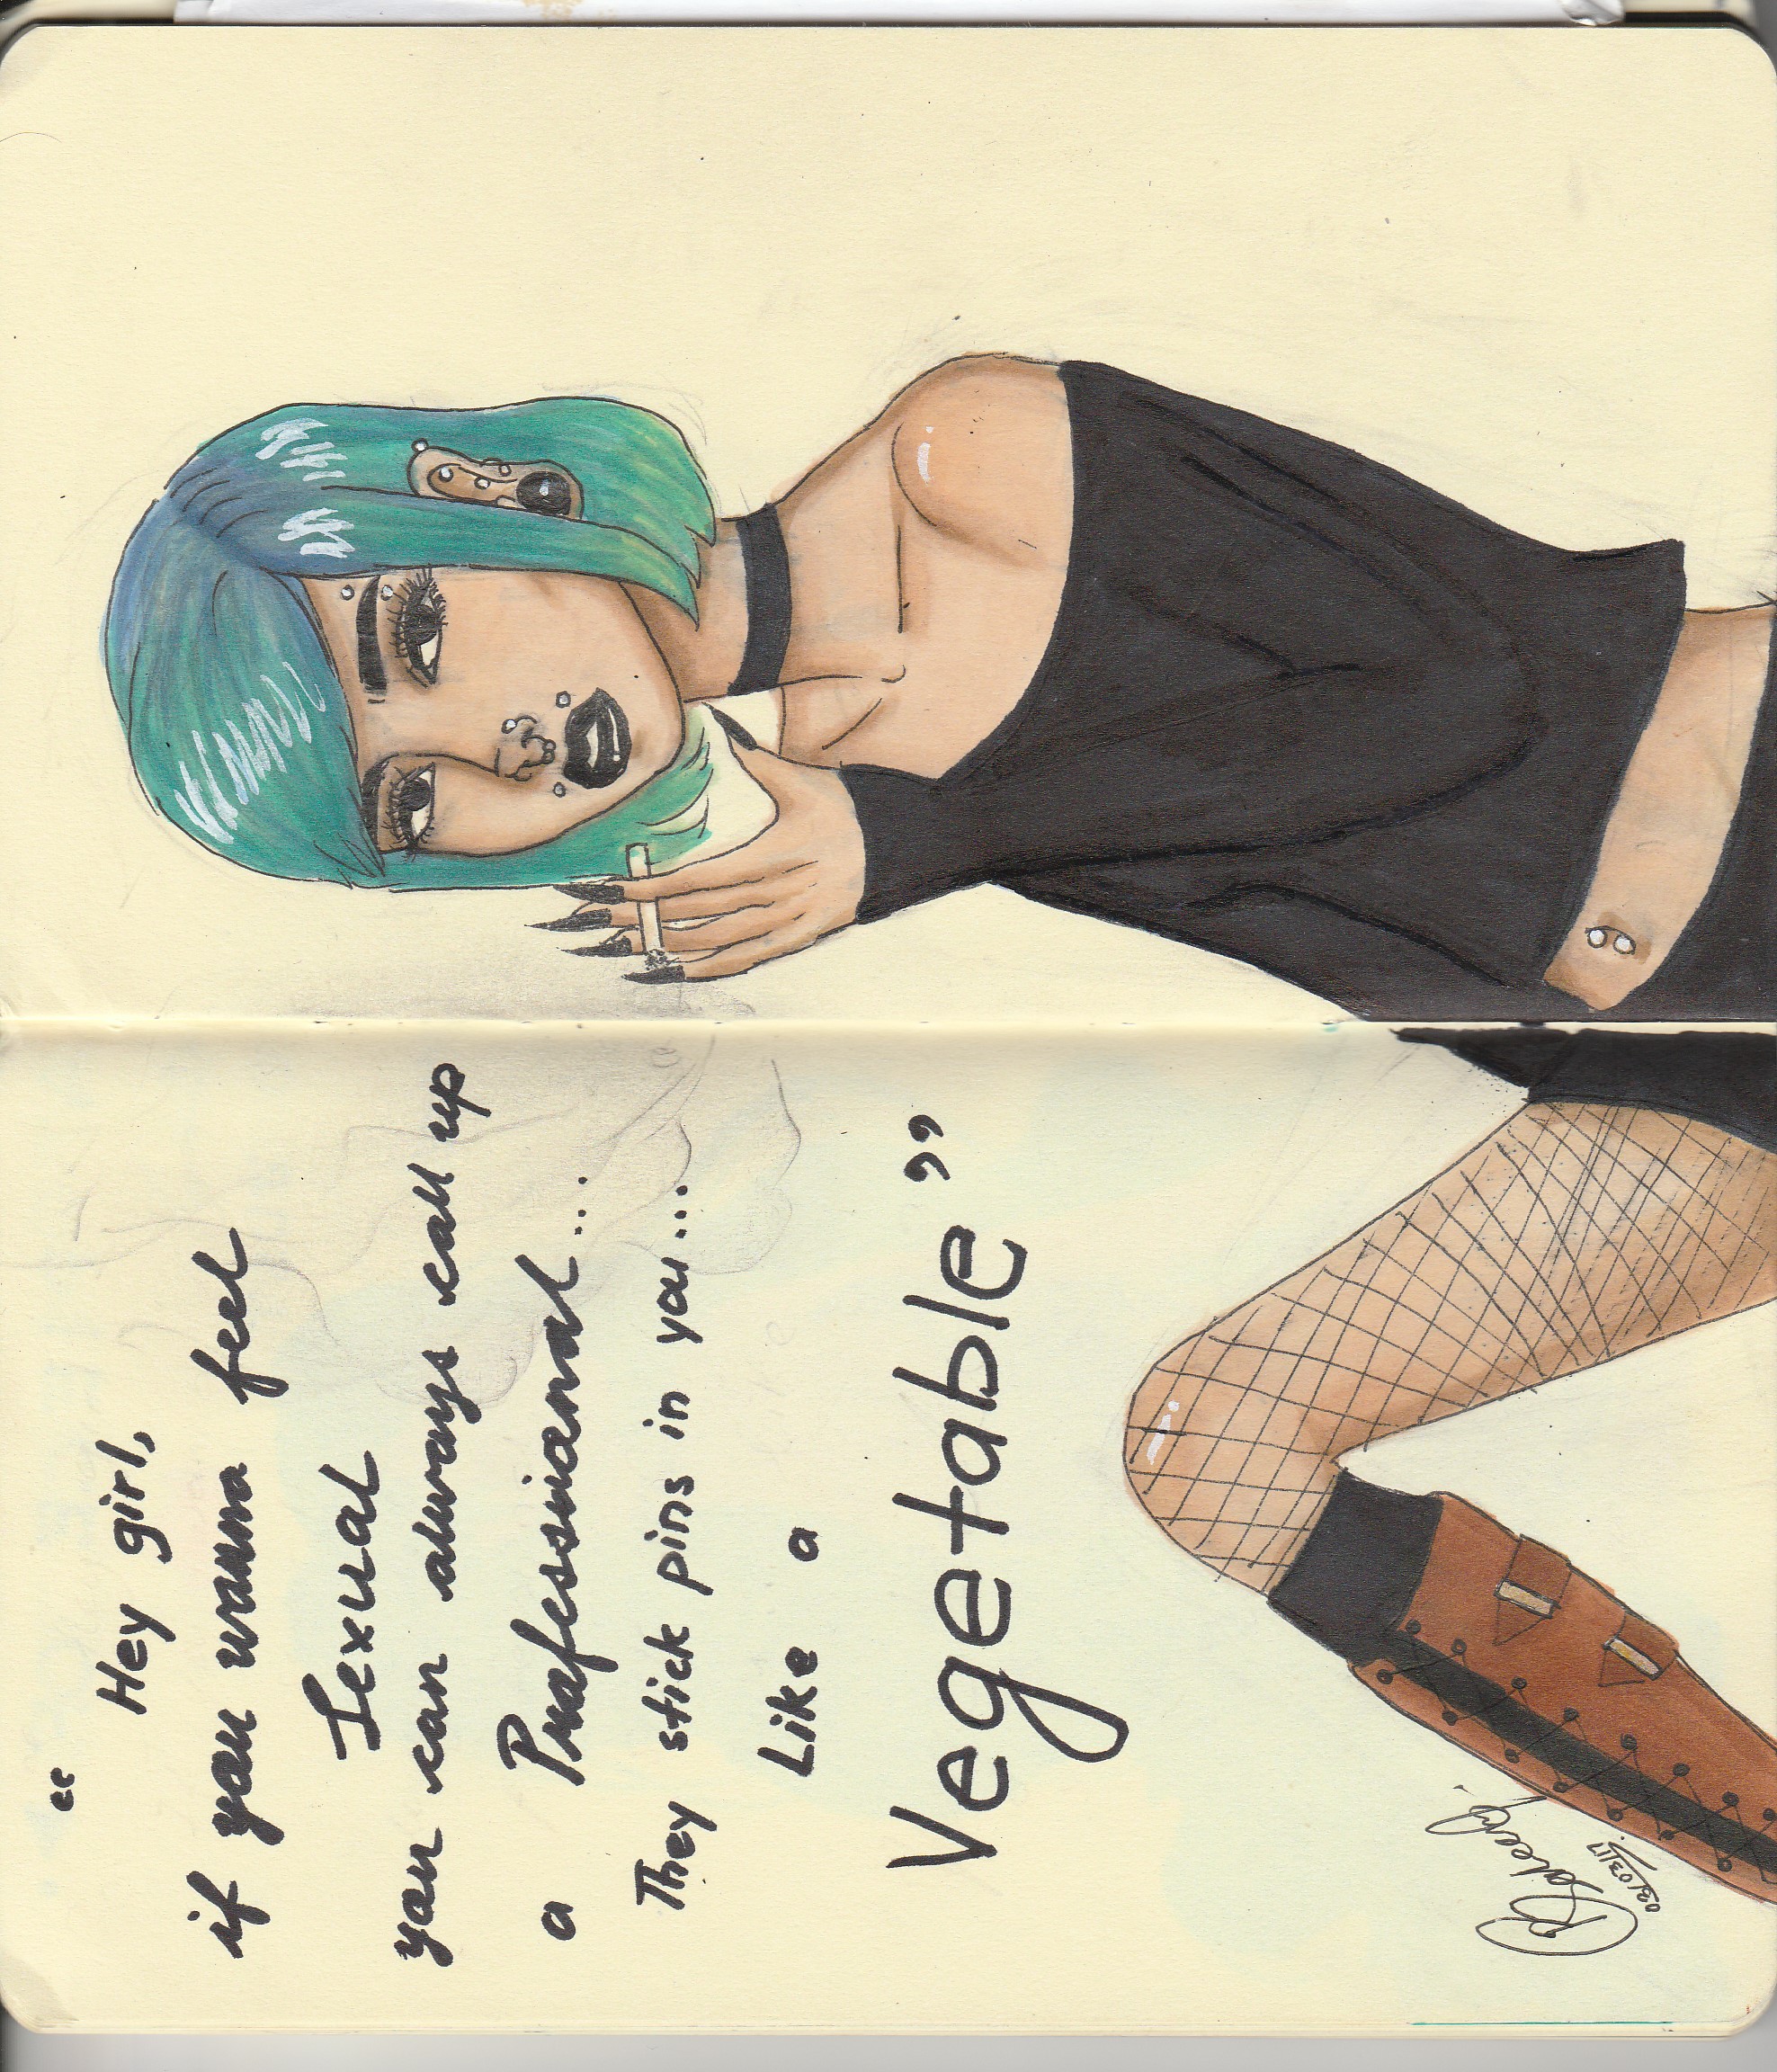 “
Hey girl,
if you wanna feel
Sexual
you can always call up
a Professional...
They stick pins in you...
Like a
Vegetable”
03/03/17